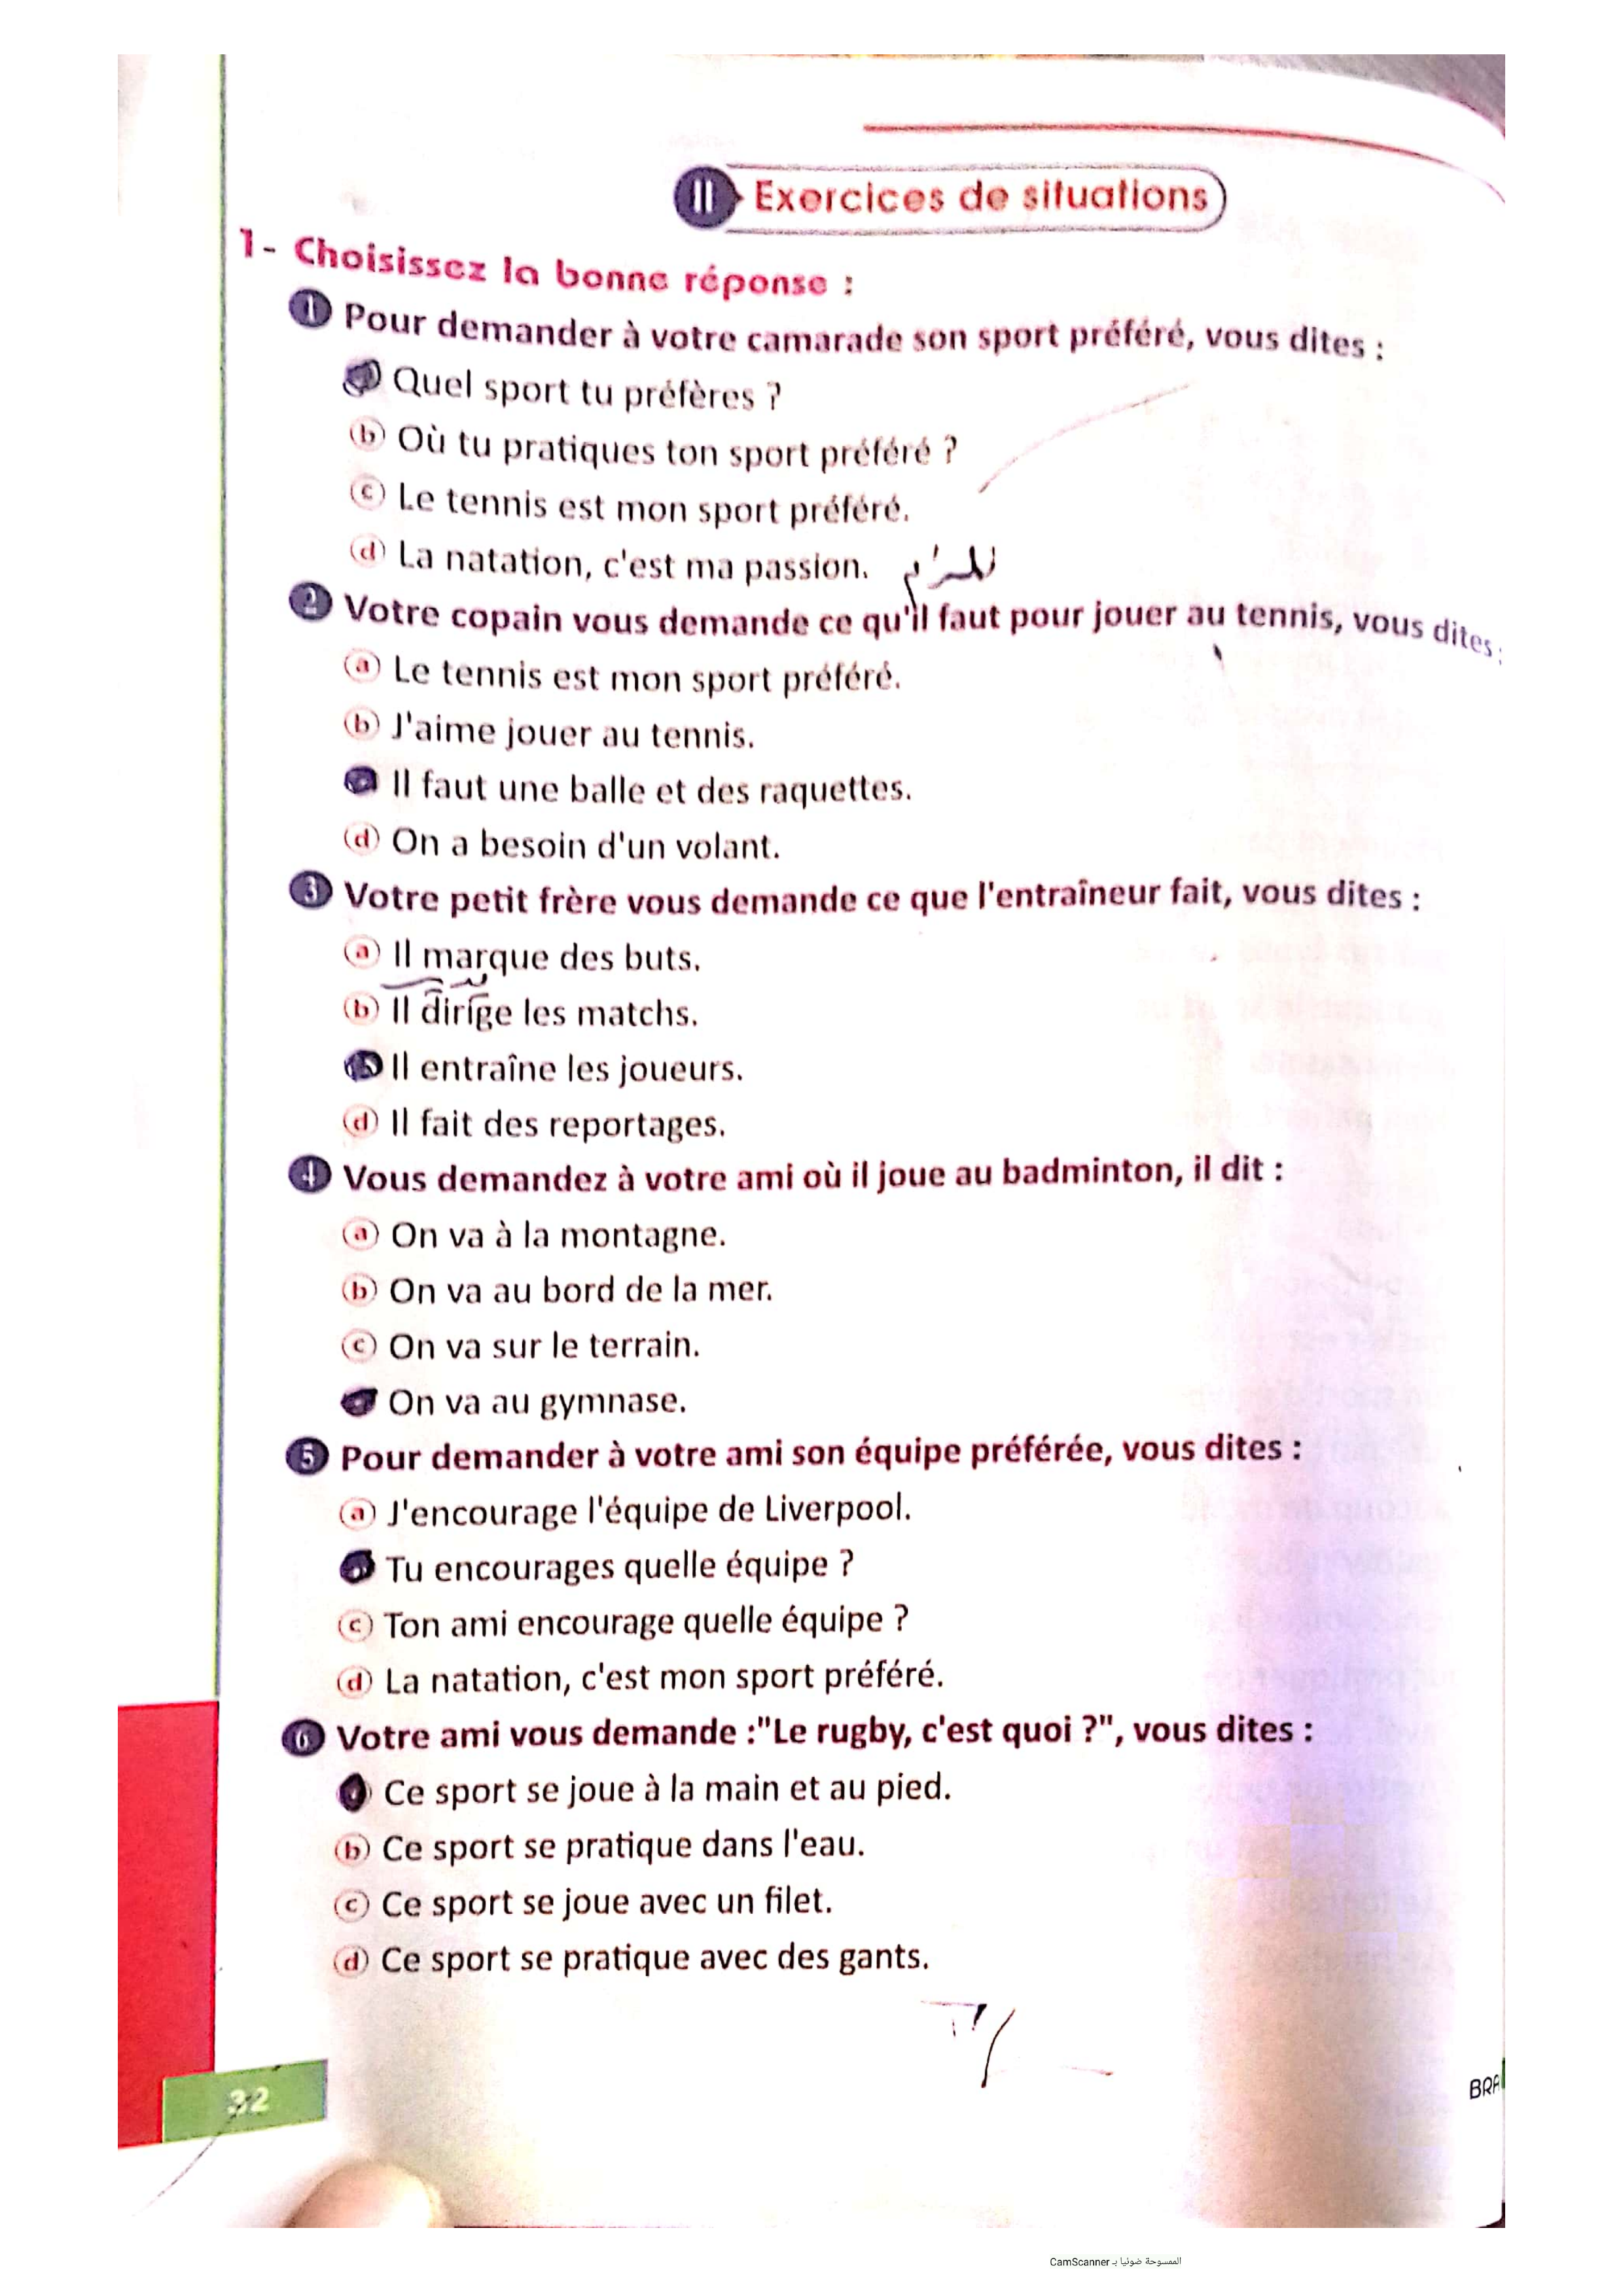 II Exercices de situations
1- Choisissez la bonne réponse :
1 Pour demander à votre camarade son sport préféré, vous dites :
Quel sport tu préfères ?
b Où tu pratiques ton sport préféré ?
c Le tennis est mon sport préféré.
d La natation, c'est ma passion.
2 Votre copain vous demande ce qu'il faut pour jouer au tennis, vous dites :
a Le tennis est mon sport préféré.
b J'aime jouer au tennis.
Il faut une balle et des raquettes.
d On a besoin d'un volant.
3 Votre petit frère vous demande ce que l'entraîneur fait, vous dites :
a Il marque des buts.
b Il dirige les matchs.
Il entraîne les joueurs.
d Il fait des reportages.
4 Vous demandez à votre ami où il joue au badminton, il dit :
a On va à la montagne.
b On va au bord de la mer.
c On va sur le terrain.
On va au gymnase.
5 Pour demander à votre ami son équipe préférée, vous dites :
a J'encourage l'équipe de Liverpool.
Tu encourages quelle équipe ?
c Ton ami encourage quelle équipe ?
d La natation, c'est mon sport préféré.
6 Votre ami vous demande :"Le rugby, c'est quoi ?", vous dites :
Ce sport se joue à la main et au pied.
b Ce sport se pratique dans l'eau.
c Ce sport se joue avec un filet.
d Ce sport se pratique avec des gants.
32
BRA
الممسوحة ضوئيا بـ CamScanner